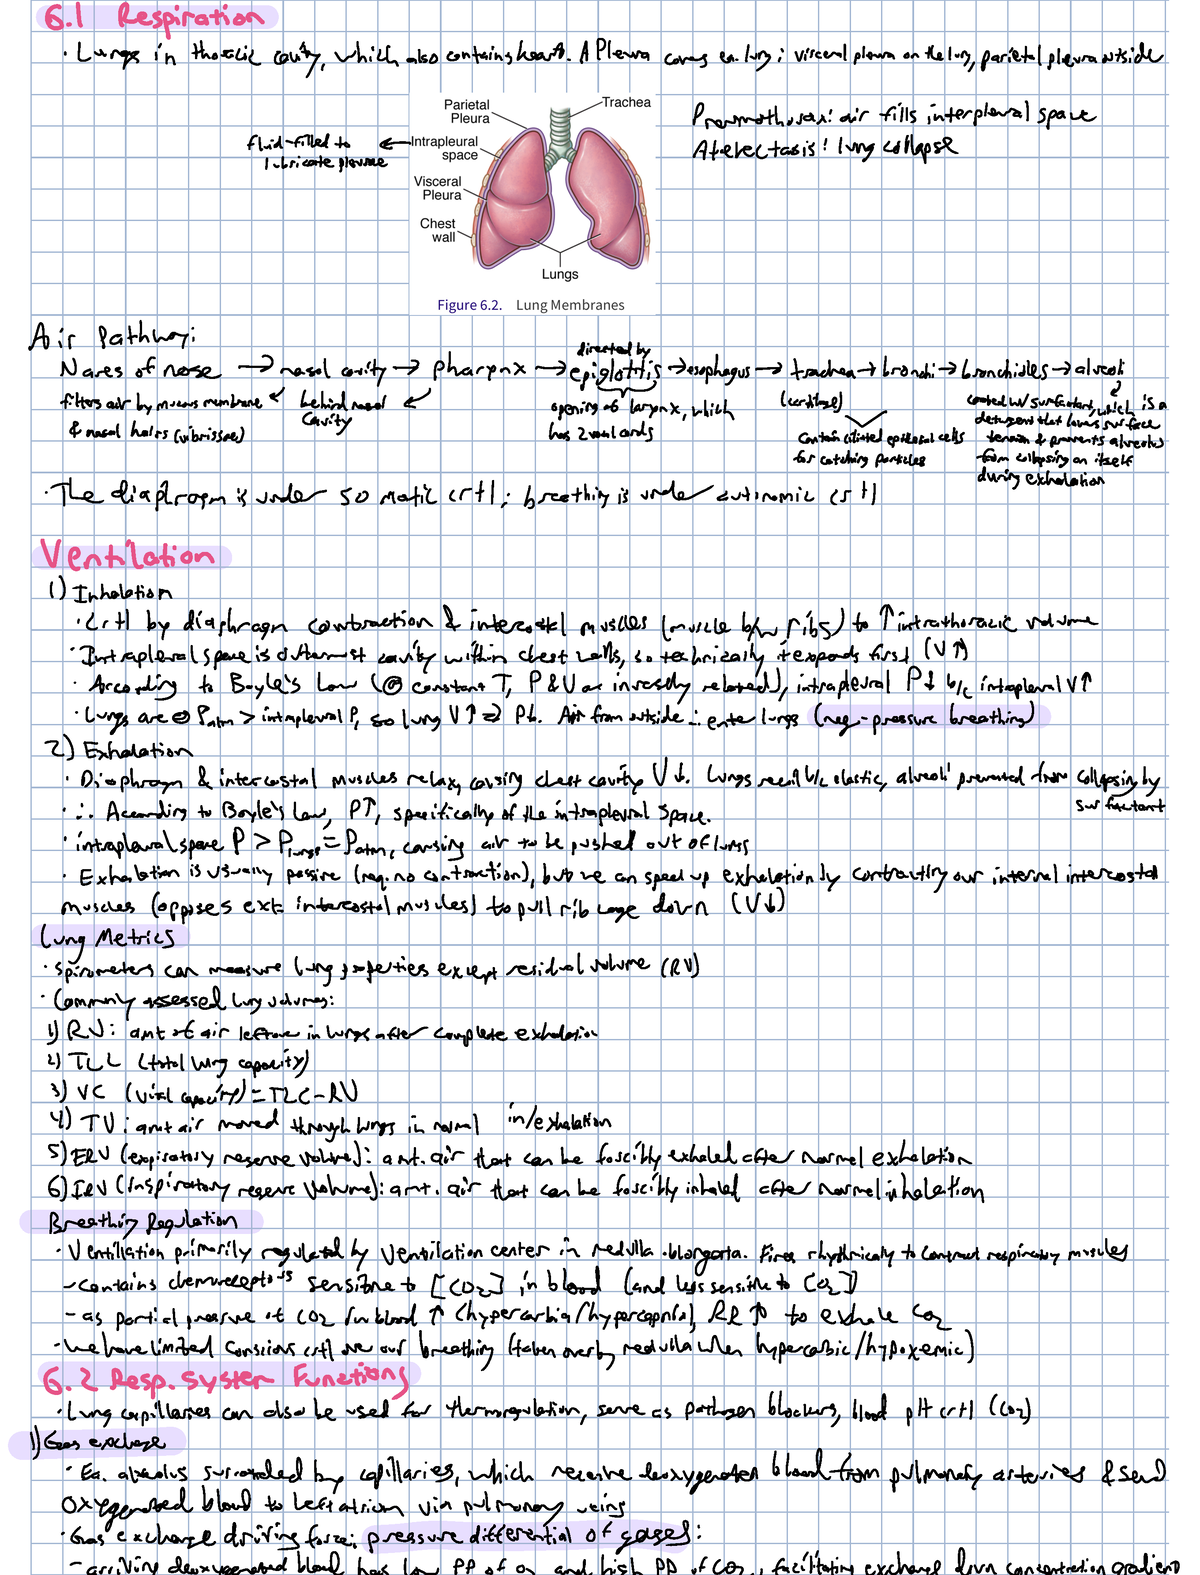 6.1 Respiration
· Lungs in thoracic cavity, which also contains heart. A Pleura covers ea. lung; visceral pleura on the lung, parietal pleura outside
Parietal Pleura
Trachea
Pneumothorax: air fills interpleural space
fluid-filled to lubricate pleurae
Intrapleural space
Atelectasis: lung collapse
Visceral Pleura
Chest wall
Lungs
Figure 6.2. Lung Membranes
Air Pathway:
directed by
Nares of nose → nasal cavity → pharynx → epiglottis → esophagus → trachea → bronchi → bronchioles → alveoli
filters air by mucous membrane & nasal hairs (vibrissae)
behind nasal cavity
opening of larynx, which has 2 vocal cords
(cartilage)
contain ciliated epithelial cells for catching particles
coated w/ surfactant, which is a detergent that lowers surface tension & prevents alveolus from collapsing on itself during exhalation
· The diaphragm is under somatic crtl; breathing is under autonomic crtl
Ventilation
1) Inhalation
· Crtl by diaphragm contraction & intercostal muscles (muscle b/w ribs) to ↑ intrathoracic volume
· Intrapleural space is outermost cavity within chest walls, so technically it expands first (V↑)
· According to Boyle's Law (@ constant T, P & V are inversely related), intrapleural P↓ b/c intrapleural V↑
· Lungs are @ Patm > intrapleural P, so lung V↑ ⇒ P↓. Air from outside ∴ enter lungs (neg-pressure breathing)
2) Exhalation
· Diaphragm & intercostal muscles relax, causing chest cavity V↓. Lungs recoil b/c elastic, alveoli prevented from collapsing by surfactant
· ∴ According to Boyle's Law, P↑, specifically of the intrapleural space.
· intrapleural space P > Plungs = Patm, causing air to be pushed out of lungs
· Exhalation is usually passive (req. no contraction), but we can speed up exhalation by contracting our internal intercostal
muscles (opposes ext. intercostal muscles) to pull rib cage down (V↓)
Lung Metrics
· spirometers can measure lung properties except residual volume (RV)
· Commonly assessed lung volumes:
1) RV: amt of air leftover in lungs after complete exhalation
2) TLC (total lung capacity)
3) VC (vital capacity) = TLC - RV
4) TV: amt air moved through lungs in normal in/exhalation
5) ERV (expiratory reserve volume): amt. air that can be forcibly exhaled after normal exhalation
6) IRV (inspiratory reserve volume): amt. air that can be forcibly inhaled after normal inhalation
Breathing Regulation
· Ventillation primarily regulated by ventilation center in medulla oblongata. Fires rhythmically to contract respiratory muscles
- contains chemoreceptors sensitive to [CO2] in blood (and less sensitive to [O2])
- as partial pressure of CO2 in blood ↑ (hypercarbia/hypercapnia), RR ↑ to exhale CO2
- we have limited conscious crtl over our breathing (taken over by medulla when hypercarbic/hypoxemic)
6.2 Resp. System Functions
· Lung capillaries can also be used for thermoregulation, serve as pathogen blockers, blood pH crtl (CO2)
1) Gas exchange
· Ea. alveolus surrounded by capillaries, which receive deoxygenated blood from pulmonary arteries & send
oxygenated blood to left atrium via pulmonary veins
· Gas exchange driving force: pressure differential of gases:
- arriving deoxygenated blood has low PP of O2 and high PP of CO2, facilitating exchange down concentration gradient